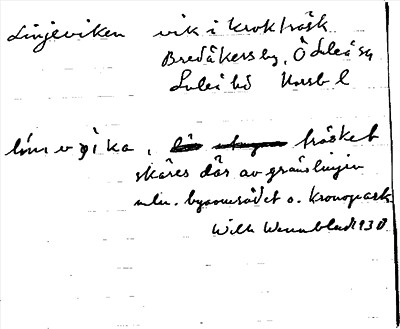 Linjeviken vik i Krokträsk
Bredåkers by, Ö Luleå sn
Luleå hd Norrb l
träsket
skäres där av gränslinjen
mln. byområdet o. Kronopark
Wilh Wennblad 1930